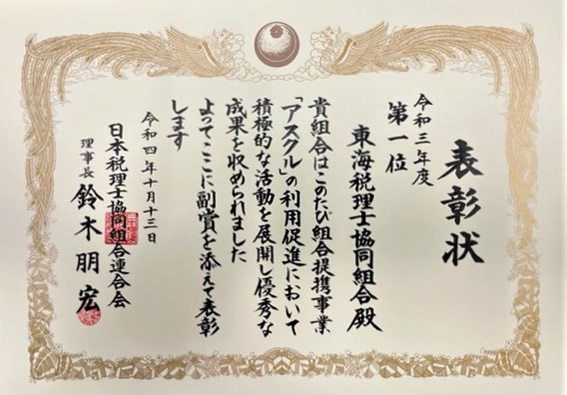 表彰状
令和三年度
第一位
東海税理士協同組合殿
貴組合はこのたび組合提携事業
「アスクル」の利用促進において
積極的な活動を展開し優秀な
成果を収められました
よってここに副賞を添えて表彰
します
令和四年十月十三日
日本税理士協同組合連合会
理事長 鈴木朋宏